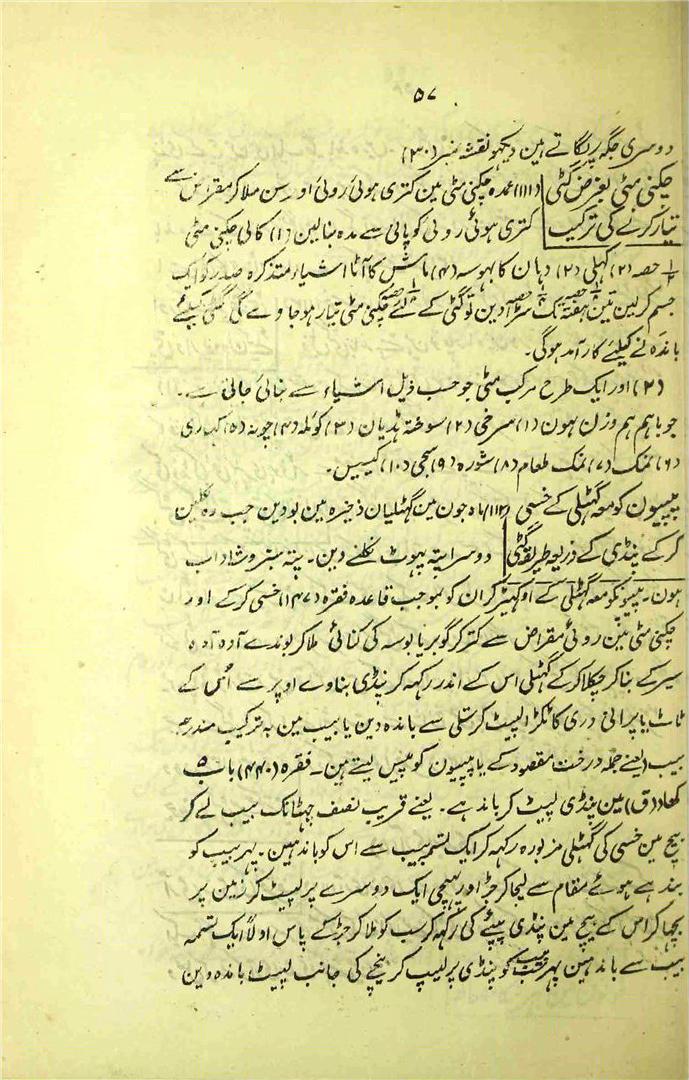 ۵۷
دوسری جگہ پر لگاتے ہین دیکھو نقشہ نمبر (۳۰)
چکنی مٹی بغرض گٹی (۱۱۱) عمدہ چکنی مٹی مین کتری ہوئی روئی اور سن ملا کر مقراض سے
تیار کرنے کی ترکیب کتری ہوئی روئی کو پانی سے مدہ بنا لین (۱) کالی چکنی مٹی
حصہ (۲) کہلی (۳) دہان کا بہوسہ (۴) ماش کا آٹا اشیار متذکرہ صدر کو ایک
جسم کر لین تین ہفتہ تک سڑا دین تو گٹی کے لئے چکنی مٹی تیار ہو جاوے گی گٹی کیلئے
باندہنے کیلئے کار آمد ہوگی۔
(۲) اور ایک طرح مرکب مٹی جو حسب ذیل اشیاء سے بنائی جاتی ہے۔
جو باہم ہم وزن ہون (۱) سرخی (۲) سوختہ ہڈیان (۳) کوئلہ (۴) چونہ (۵) کہاری
(۶) نمک (۷) نمک طعام (۸) شورہ (۹) سجی (۱۰) کسیس۔
پیپیون کو معہ گہٹلی کے خسی (۱۱۲) ماہ جون مین گہٹلیان ذخیرہ مین بو دین جب وہ نکلین
کر کے پنڈی کے ذریعہ طریقہ گٹی دوسرا پتہ پہوٹ نکلنے دین۔ پتہ سبز و شاداب
ہون۔ پیپیونکو معہ گہٹلی کے اوکہیڑ کر ان کو بموجب قاعدہ فقرہ (۱۴۷) خسی کر کے اور
چکنی مٹی مین روئی مقراض سے کتر کر گوبر یا بوسہ کی کنائی ملا کر لوندے آدہ آدہ
سیر کے بنا کر چپکلا کر کے گہٹلی اس کے اندر رکہہ کر پنڈی بناوے اوپر سے اُس کے
ٹاٹ یا پرانی دری کا ٹکڑا لپیٹ کر ستلی سے باندہ دین یا بیب مین بہ ترکیب مندرجہ
بیب (یعنے جملہ درخت مقصود کے یا پیپیون کو پیس لیتے ہین۔ فقرہ (۴۴۰) باب ۵
کھاد (ق) مین پنڈی لپیٹ کر باندہے۔ یعنے قریب نصف چہٹانک بیب لے کر
بیچ مین خسی کی گہٹلی مزبورہ رکہہ کر ایک تسمہ بیب سے اس کو باندہین۔ پہر بیب کو
بندہے ہوئے مقام سے لیجا کر جڑ اور پہچی ایک دوسرے پر لپیٹ کر زمین پر
بچہا کر اس کے بیچ مین پنڈی پیپئے کی رکہہ کر سب کو ملا کر جڑ کے پاس اولاً ایک تسمہ
بیب سے باندہین پہر بیب کو پنڈی پر لپیٹ کر نیچے کی جانب لپیٹ باندہ دین